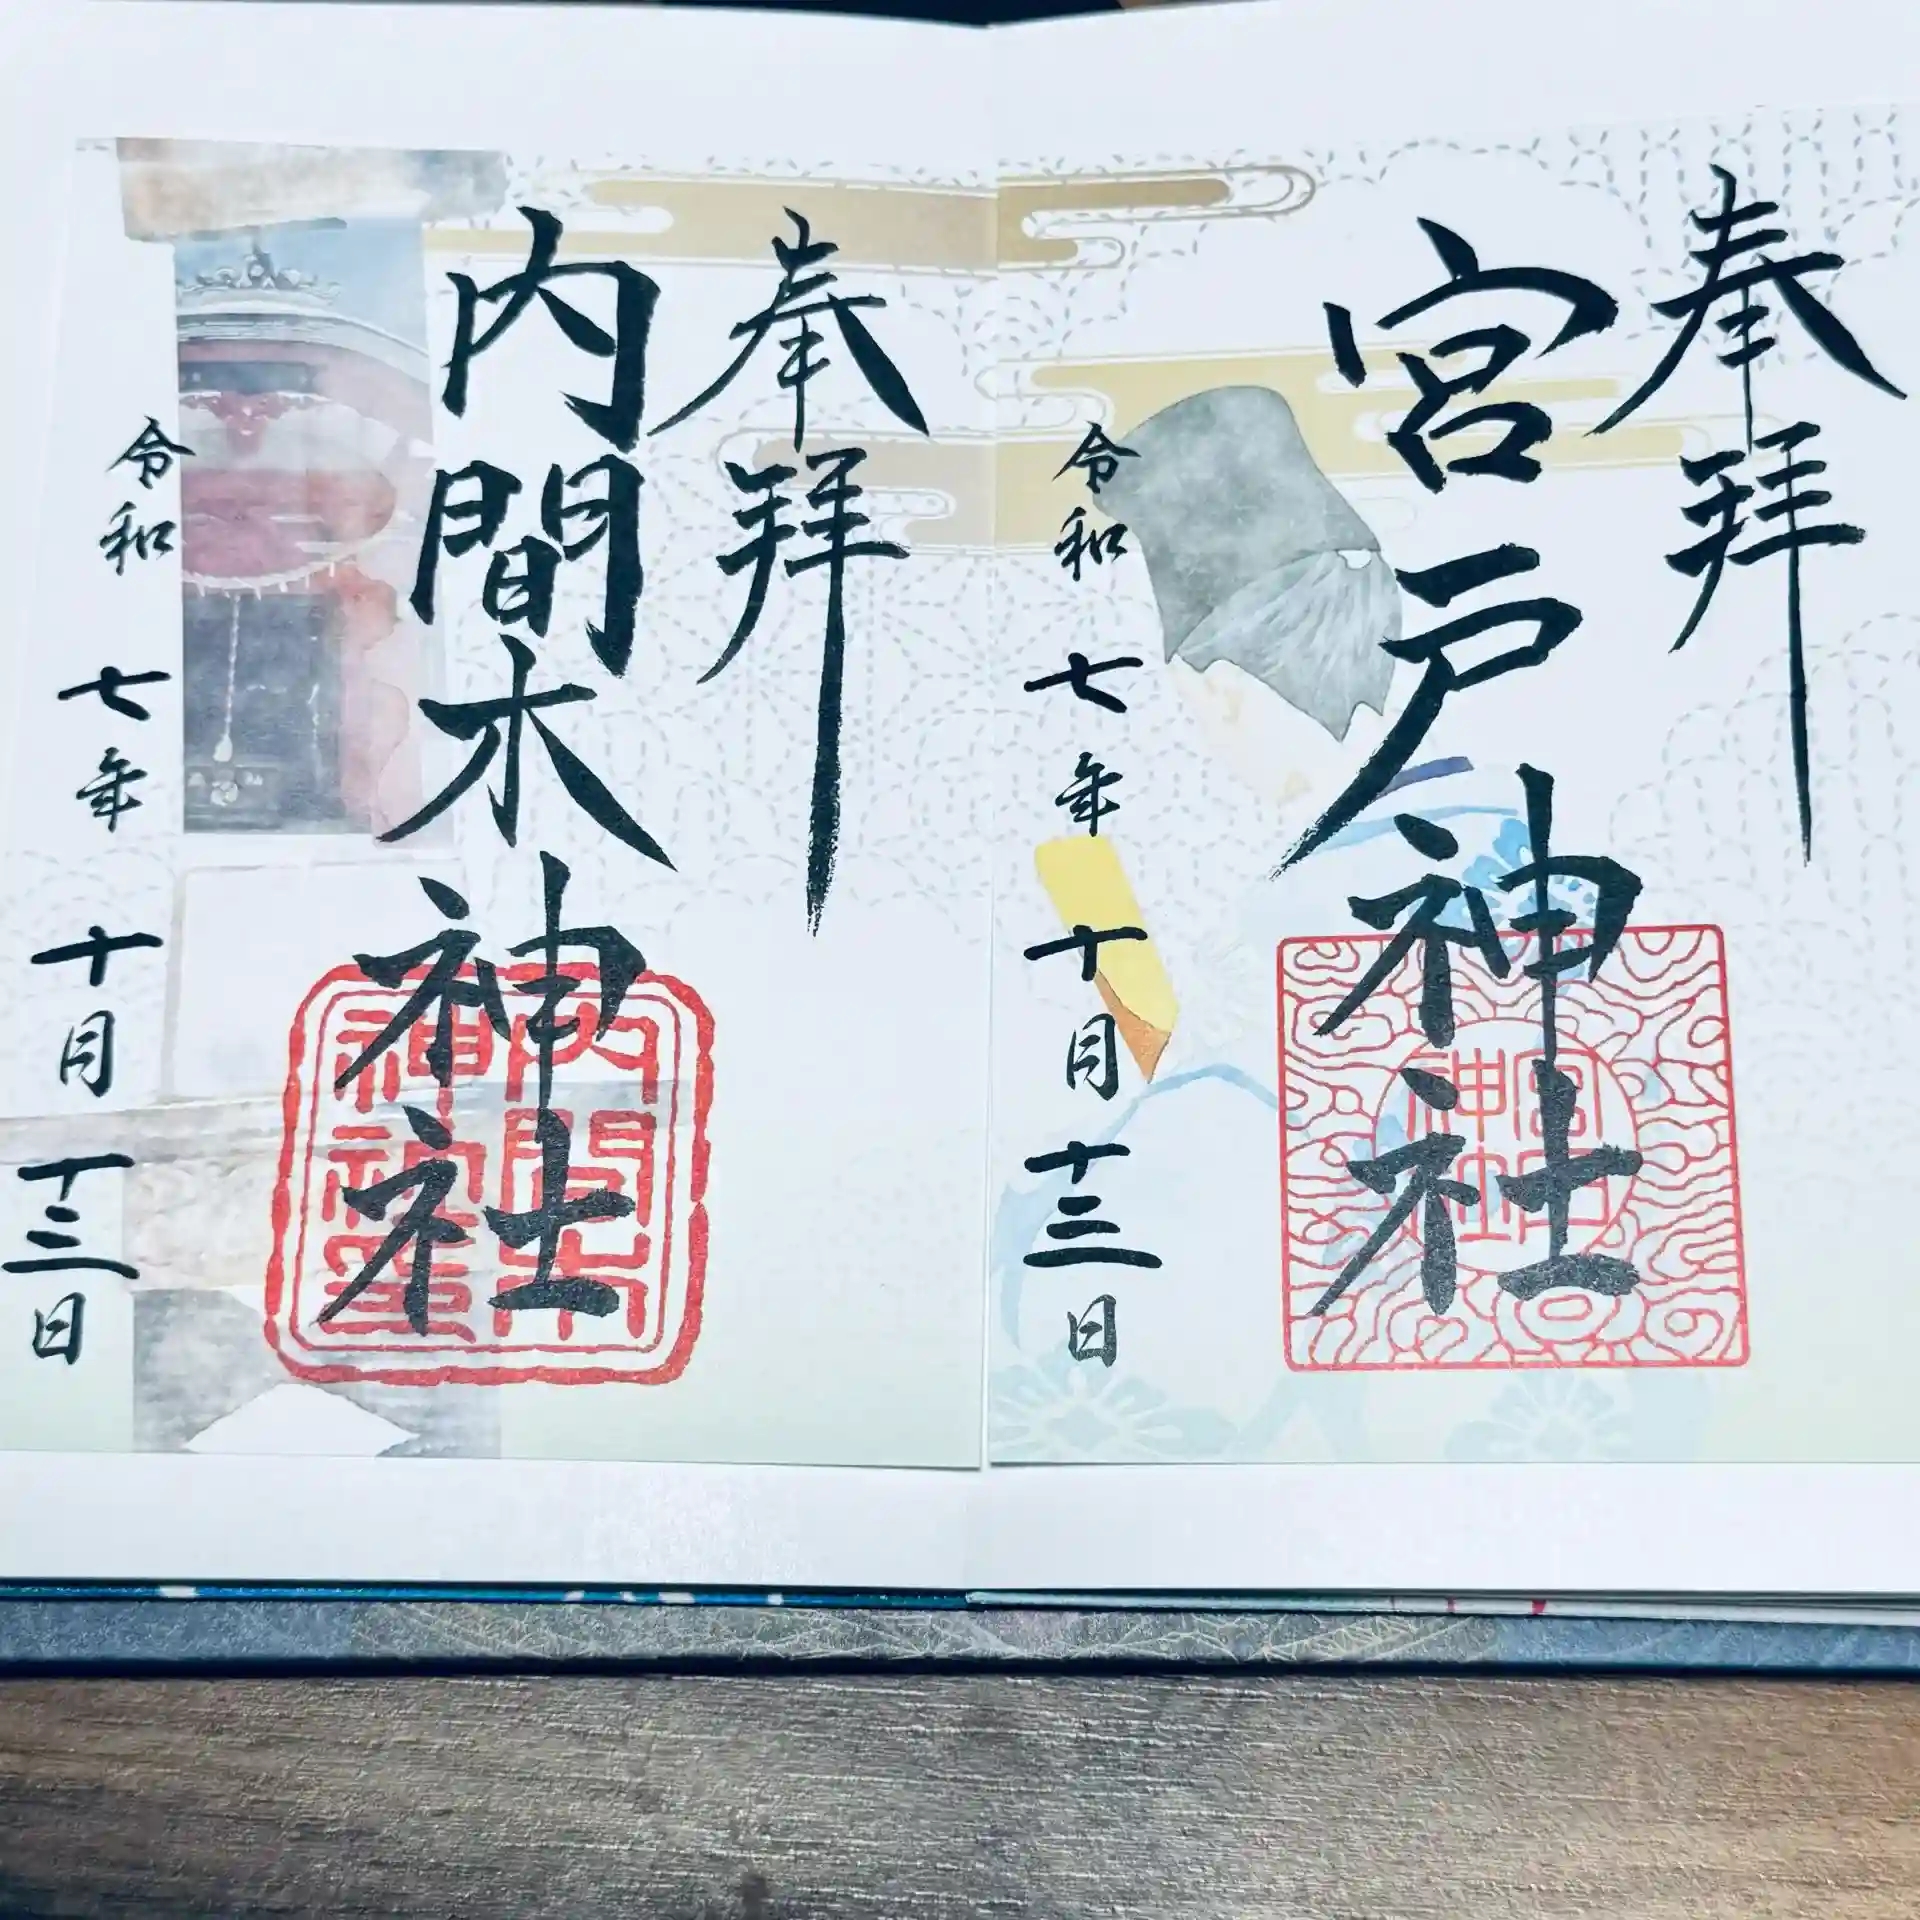 奉拝
宮戸神社
宮戸
神社
令和七年十月十三日
奉拝
内間木神社
内間木
神社
令和七年十月十三日